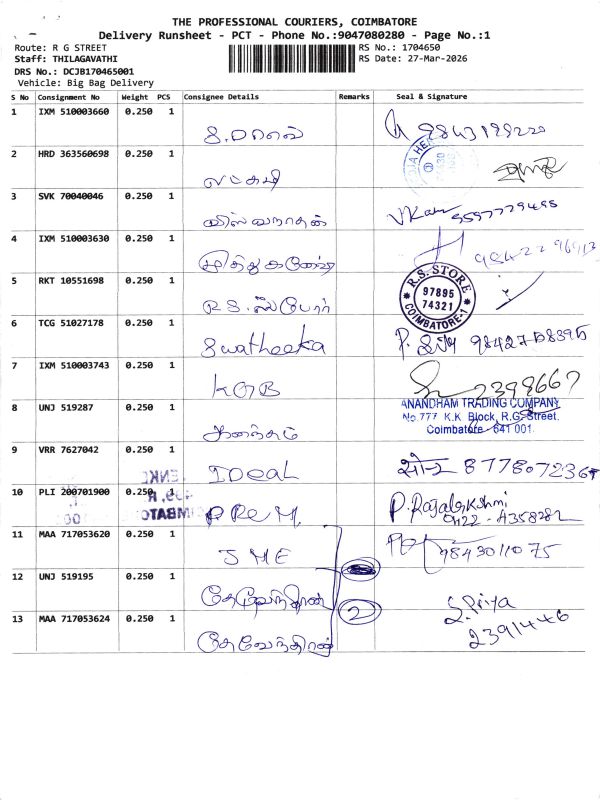 THE PROFESSIONAL COURIERS, COIMBATORE
Delivery Runsheet - PCT - Phone No.:9047080280 - Page No.:1
Route: R G STREET
RS No.: 1704650
Staff: THILAGAVATHI
RS Date: 27-Mar-2026
DRS No.: DCJB170465001
Vehicle: Big Bag Delivery
S No Consignment No Weight PCS Consignee Details Remarks Seal & Signature
1 IXM 510003660 0.250 1
2 HRD 363560698 0.250 1 லட்சுமி
3 SVK 70040046 0.250 1 விஸ்வநாதன்
4 IXM 510003630 0.250 1 முத்துகணேஷ்
5 RKT 10551698 0.250 1 R.S. ஸ்டோர்
R.S. STORE
97895
74321
COIMBATORE-1
6 TCG 51027178 0.250 1 Swatheeka
7 IXM 510003743 0.250 1 KGB 2398667
8 UNJ 519287 0.250 1 ஆனந்தம்
ANANDHAM TRADING COMPANY
No.777 K.K Block, R.G. Street.
Coimbatore - 641 001.
9 VRR 7627042 0.250 1 IDeaL
10 PLI 200701900 0.250 1 PReM P. Rajalakshmi
11 MAA 717053620 0.250 1 JME 9843011075
12 UNJ 519195 0.250 1 தேவேந்திரன் 2 S. Priya
2391446
13 MAA 717053624 0.250 1 தேவேந்திரன்